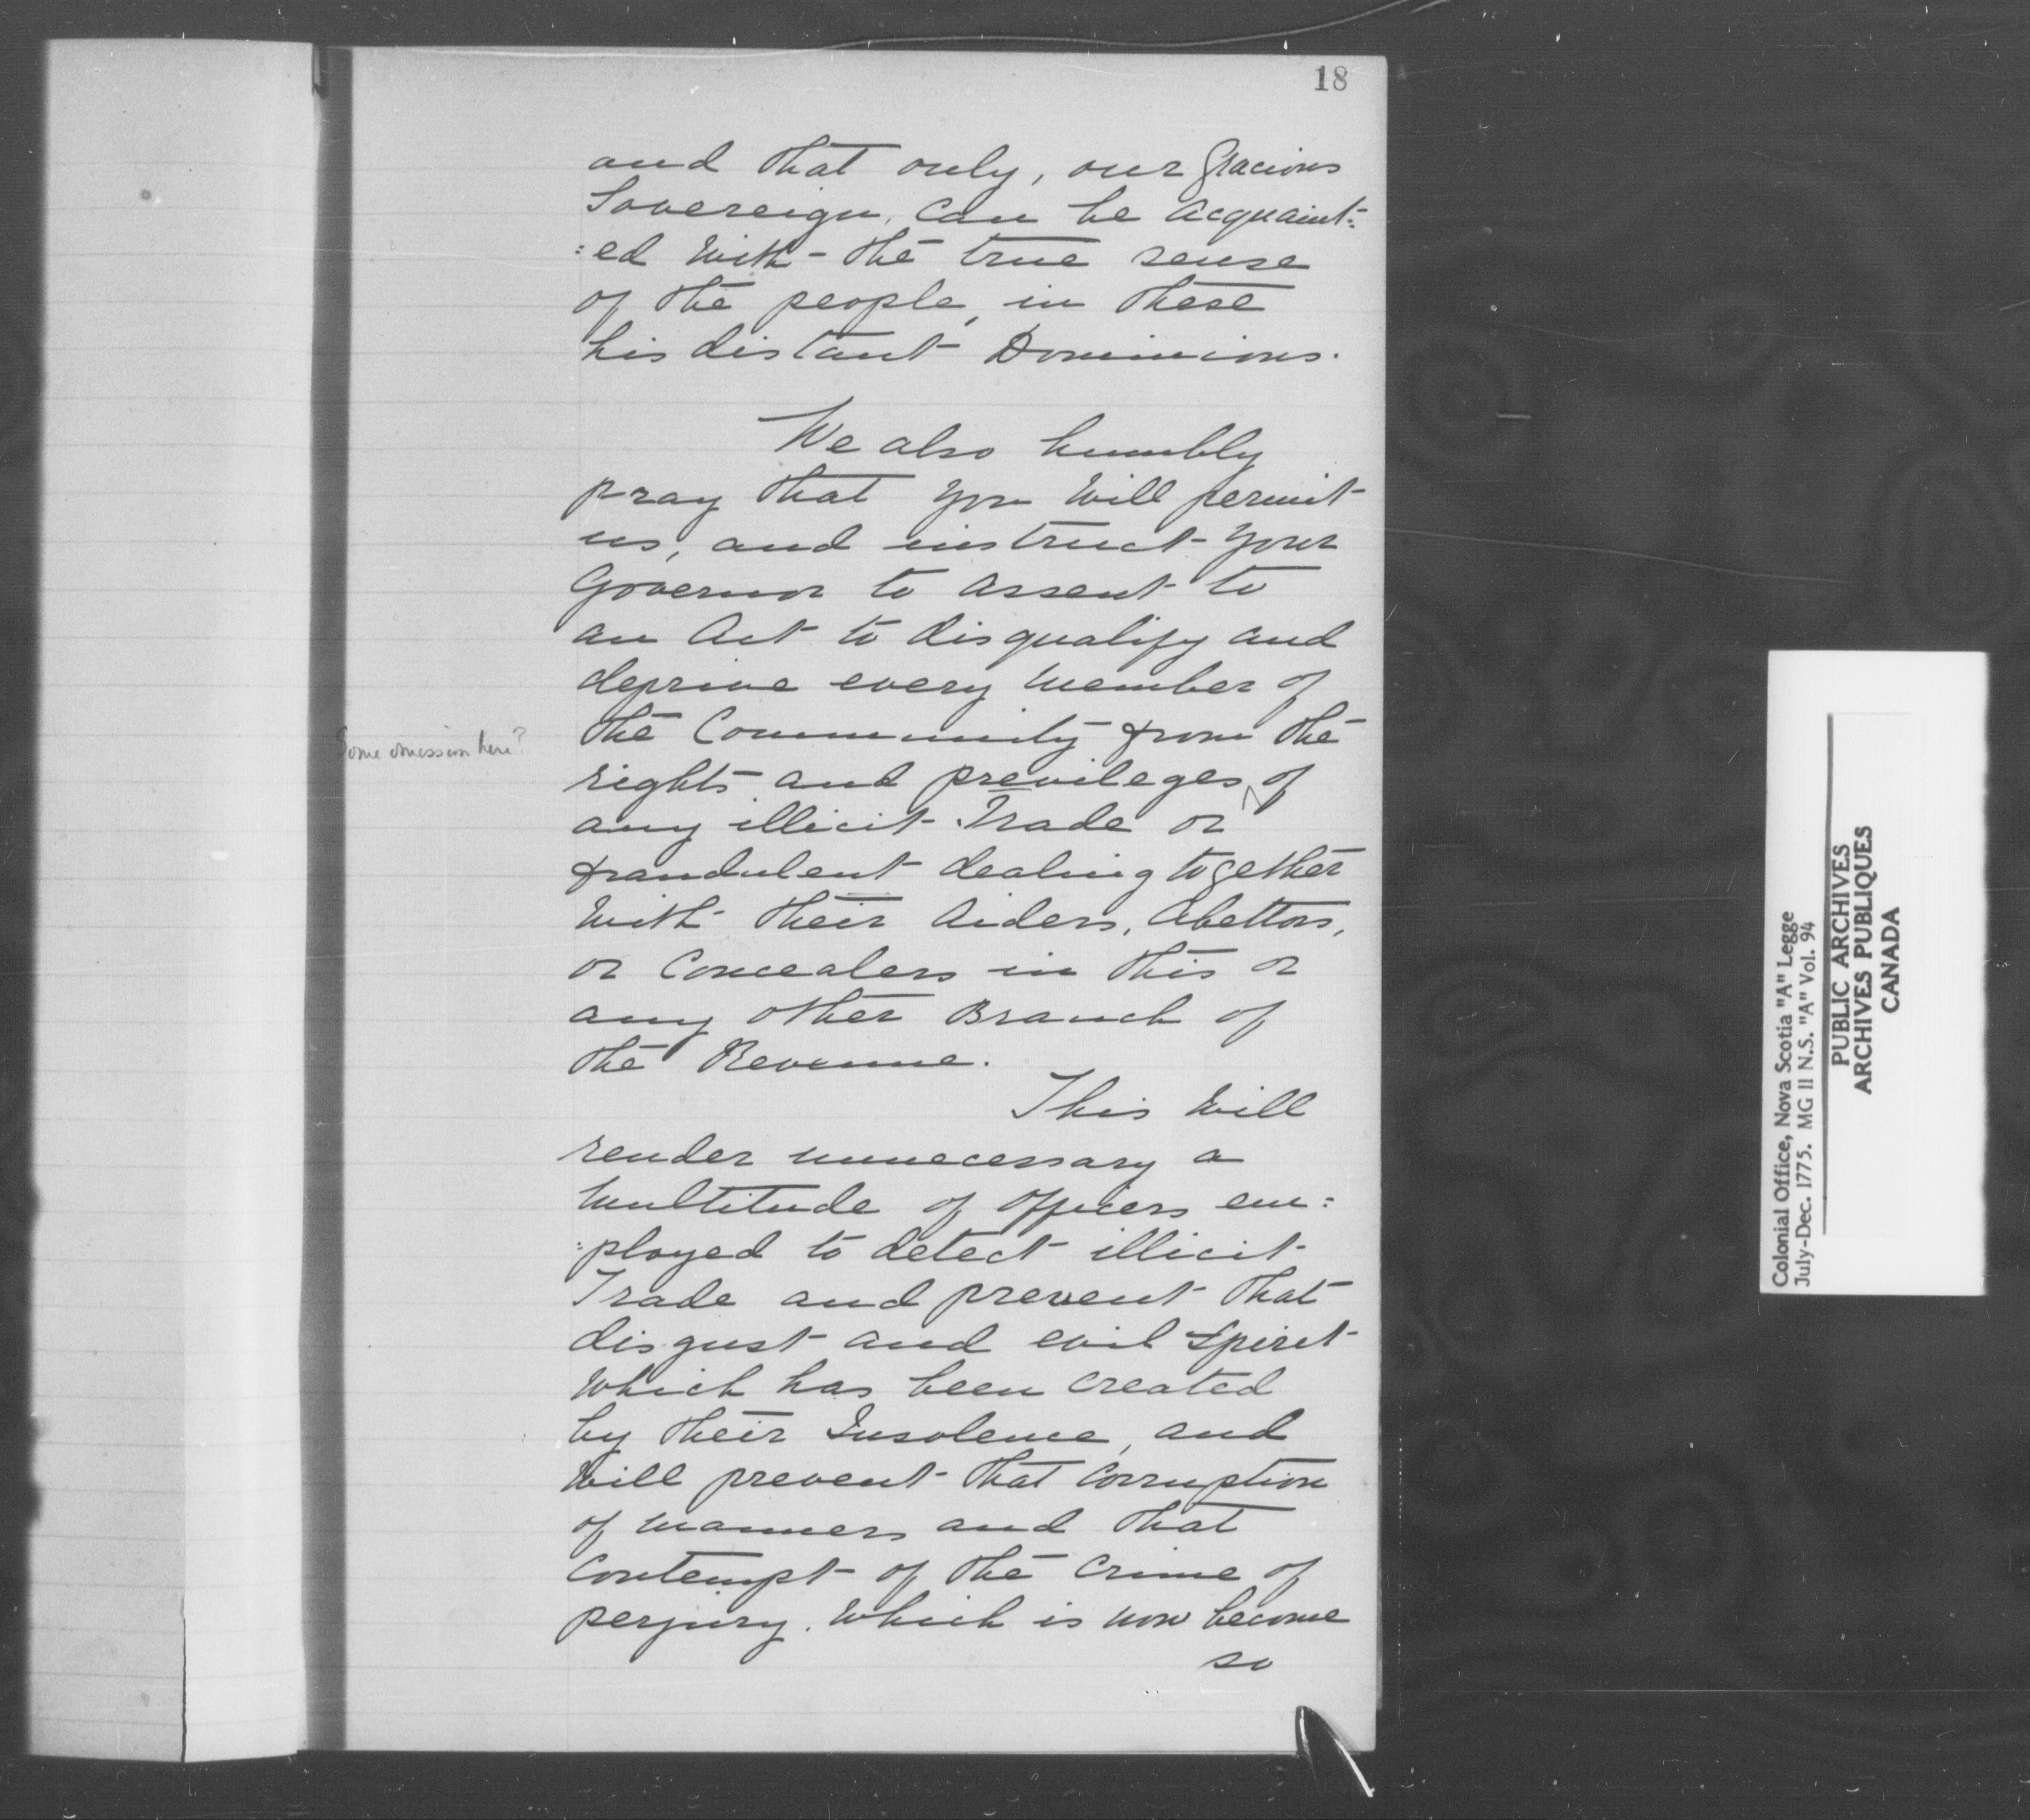 18
and that only, our Gracious
Sovereign, Can be Acquaint:
:ed With the true sense
of the people, in these
his distant Dominions.
We also humbly
pray that You Will permit
us, and instruct Your
Governor to Assent to
an Act to disqualify and
deprive every Member of
the Community from the
Some omission here?
rights and previleges of
any illicit Trade or
fraudulent dealing together
With their Aiders, Abettors,
or Concealers in this or
any other Branch of
the Revenue.
This Will
render unnecessary a
Multitude of Officers em:
:ployed to detect illicit
Trade and prevent that
disgust and evil Spirit
Which has been Created
by their Insolence, and
Will prevent that Corruption
of Manners and that
Contempt of the Crime of
perjury. Which is now become
so
Colonial Office, Nova Scotia "A" Legge
July-Dec. 1775. MG 11 N.S. "A" Vol. 94
PUBLIC ARCHIVES
ARCHIVES PUBLIQUES
CANADA